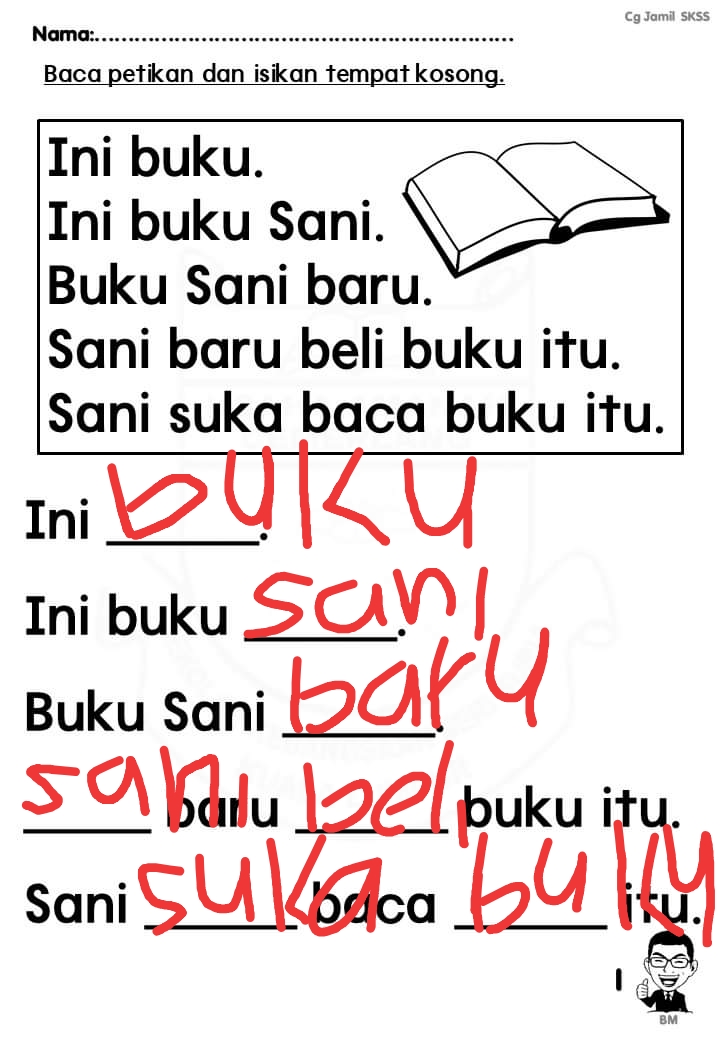 Cg Jamil SKSS
Nama:................................................................
Baca petikan dan isikan tempat kosong.
Ini buku.
Ini buku Sani.
Buku Sani baru.
Sani baru beli buku itu.
Sani suka baca buku itu.
Ini buku.
Ini buku sani.
Buku Sani baru.
sani baru beli buku itu.
Sani suka baca buku itu.
1
BM